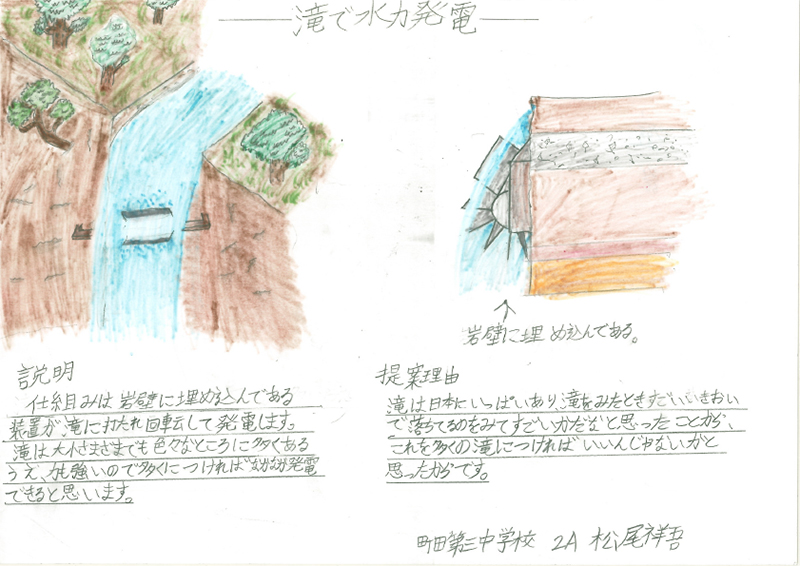 滝で水力発電
岩壁に埋め込んである。
説明
仕組みは岩壁に埋め込んである
装置が滝に打たれ回転して発電します。
滝は大小さまざまでも色々なところに多くある
うえ、力も強いので多くにつければなかなか発電
できると思います。
提案理由
滝は日本にいっぱいあり、滝をみたときすごいいきおい
で落ちてるのをみてすごい力だなと思ったことから、
これを多くの滝につければいいんじゃないかと
思ったからです。
町田第三中学校 2A 松尾祥吾